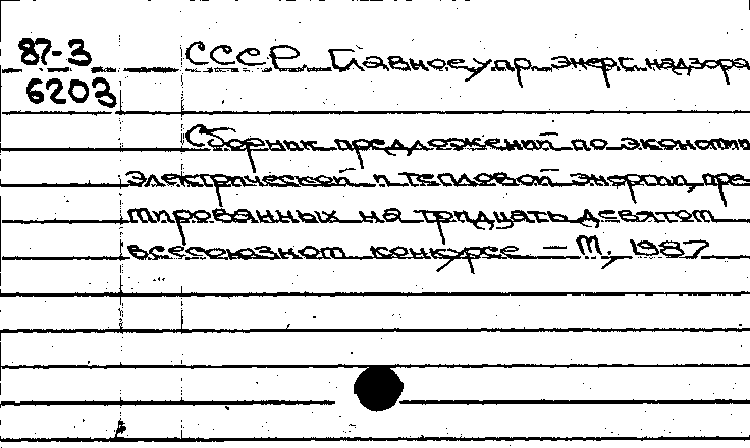 87-3 СССР. Главное упр. энерг. надзора
6203
Сборник предложений по экономии
электрической и тепловой энергии, пре
мированных на тридцать девятом
всесоюзном конкурсе – М., 1987